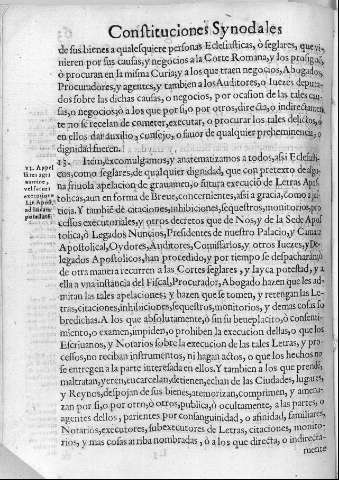 Constituciones Synodales
de sus bienes a qualesquiere personas Eclesiasticas, ò seglares, que vi-
nieren por sus causas, y negocios a la Corte Romana, y los prosigan,
ò procuran en la misma Curia; y a los que traen negocios, Abogados,
Procuradores, y agentes, y tambien a los Auditores, o Iuezes deputa-
dos sobre las dichas causas, o negocios, por ocasion de las tales cau-
sas, o negocios; ò a los que por si, o por otros, directa, o indirectamen-
te no se recelan de cometer, executar, o procurar los tales delictos, ò
en ellos dar auxilio, consejo, o fauor de qualquier preheminencia, o
dignidad fueren.
23. Appel
lātes agra
uamine,
vel futuri
executione
Lit. Apos.
ad laicam
potestatē.
23. Itē, excomulgamos, y anatematizamos a todos, assi Eclesias-
cos, como seglares, de qualquier dignidad, que con pretexto de algu-
na friuola apelacion de grauamen, o futura execuciō de Letras Apos-
tolicas, aun en forma de Breue, concernientes, assi a gracia, como a jus-
ticia. Y tambiē de citaciones, inhibiciones, sequestros, monitorios, pro-
cessos executoriales, y otros decretos que de Nos, y de la Sede Apos-
tolica, ò Legados Nuncios, Presidentes de nuestro Palacio, y Camara
Apostolical, Oydores, Auditores, Comissarios, y otros Iuezes, y De-
legados Apostolicos, han procedido, y por tiempo se despacharán, ò
de otra manera recurren a las Cortes seglares, y layca potestad, y a
ella a vna instancia del Fiscal, Procurador, Abogado hazen que les ad-
mitan las tales apelaciones; y hazen que se tomen, y retengan las Le-
tras, citaciones, inhibiciones, sequestros, monitorios, y demas cosas so-
bredichas. A los que absolutamente, ò sin su beneplacito, ò consenti-
miento, o examen, impiden, o prohiben la execucion dellas, o que los
Escriuanos, y Notarios sobre la execucion de las tales Letras, y pro-
cessos, no reciban instrumentos, ni hagan actos, o que los hechos no
se entregen a la parte interesada en ellos. Y tambien a los que prendē,
maltratan, yeren, encarcelan, detienen, echan de las Ciudades, lugares,
y Reynos, despojan de sus bienes, atemorizan, comprimen, y amena-
zan por si, o por otro, ò otros, publica, ò ocultamente, a las partes, o
agentes dellos, parientes por consanguinidad, o afinidad, familiares,
Notarios, executores, subexecutores de Letras, citaciones, monito-
rios, y mas cosas arriba nombradas, ò a los que directa, o indirecta-
mente